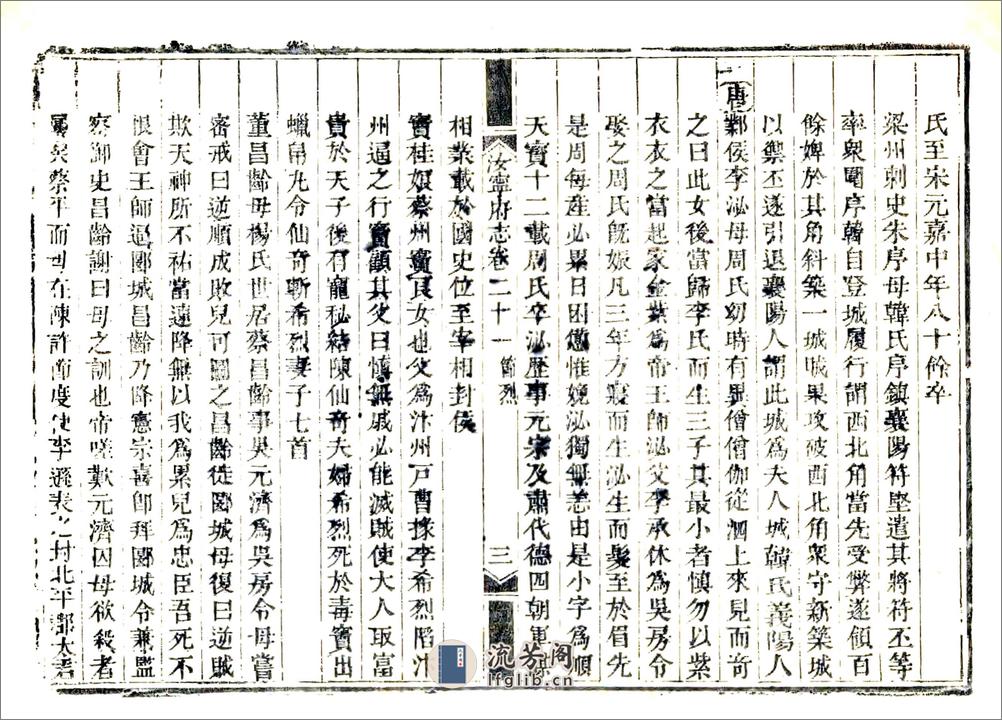 氏至宋元嘉中年八十餘卒
梁州刺史朱序母韓氏序鎮襄陽符堅遣其將符丕等
率衆圍序韓自登城履行謂西北角當先受弊遂領百
餘婢於其角斜築一城城果攻破西北角衆守新築城
以禦丕遂引退襄陽人謂此城爲夫人城韓氏義陽人
唐
鄴侯李泌母周氏幼時有異僧僧伽從泗上來見而奇
之曰此女後當歸李氏而生三子其最小者慎勿以紫
衣衣之當起家金紫爲帝王師泌父李承休爲吳房令
娶之周氏既娠凡三年方寤而生泌生而髮至於眉先
是周每產必累日困憊惟娩泌獨無恙由是小字爲順
天寶十二載周氏卒泌歷事元宗及肅代德四朝軍謀
相業載於國史位至宰相封侯
汝寧府志卷二十一 節烈 三
竇桂娘蔡州竇良女也父爲汴州戸曹掾李希烈陷汴
州逼之行竇顧其父曰慎無戚必能滅賊使大人取富
貴於天子後有寵秘結陳仙奇夫婦希烈死於毒竇出
蠟帛丸令仙奇斬希烈妻子七首
董昌齡母楊氏世居蔡昌齡事吳元濟爲吳房令母嘗
密戒曰逆順成敗兒可圖之昌齡徙郾城母復曰逆賊
欺天神所不祐當速降無以我爲累兒爲忠臣吾死不
恨會王師逼郾城昌齡乃降憲宗喜卽拜郾城令兼監
察御史昌齡謝曰母之訓也帝嗟歎元濟囚母欲殺者
屢矣蔡平而母在陳許節度使李遜表之封北平郡太君
流芳阁
lfglib.cn